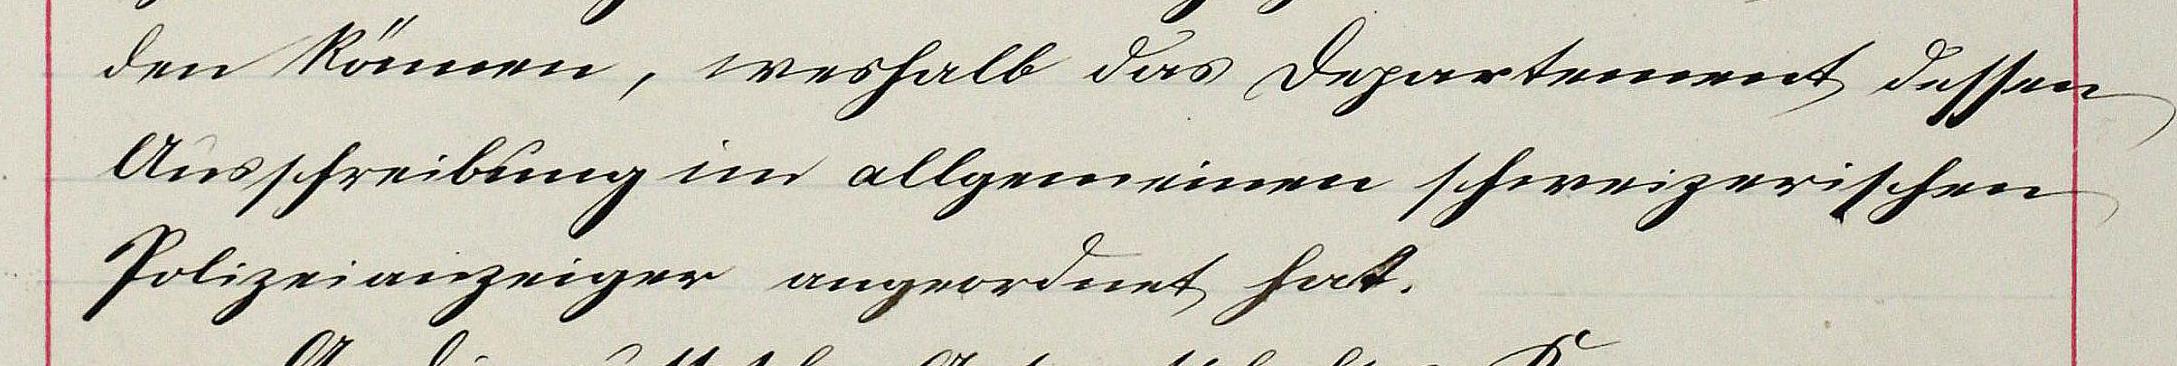 den können, weshalb das Departement dessen
Ausschreibung im allgemeinen schweizerischen
Polizeianzeiger angeordnet hat.